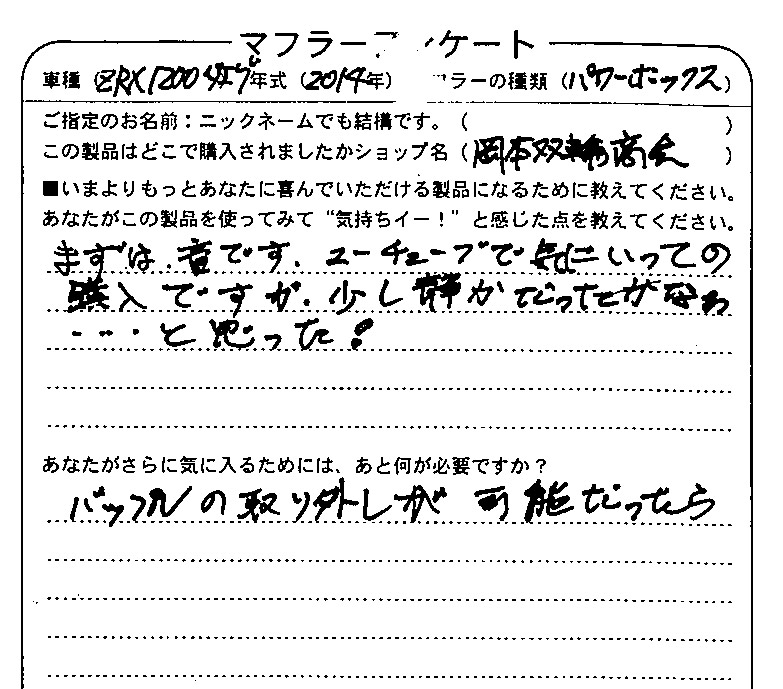 マフラーアンケート
車種（ZRX1200ダエグ）年式（2014年）マフラーの種類（パワーボックス）
ご指定のお名前：ニックネームでも結構です。（　　　）
この製品はどこで購入されましたかショップ名（岡本双輪商会）
■いまよりもっとあなたに喜んでいただける製品になるために教えてください。
あなたがこの製品を使ってみて“気持ちイー！”と感じた点を教えてください。
まずは、音です、ユーチューブで気にいっての
購入ですが、少し静かだったかなぁ
・・・と思った！
あなたがさらに気に入るためには、あと何が必要ですか？
バッフルの取り外しが可能だったら